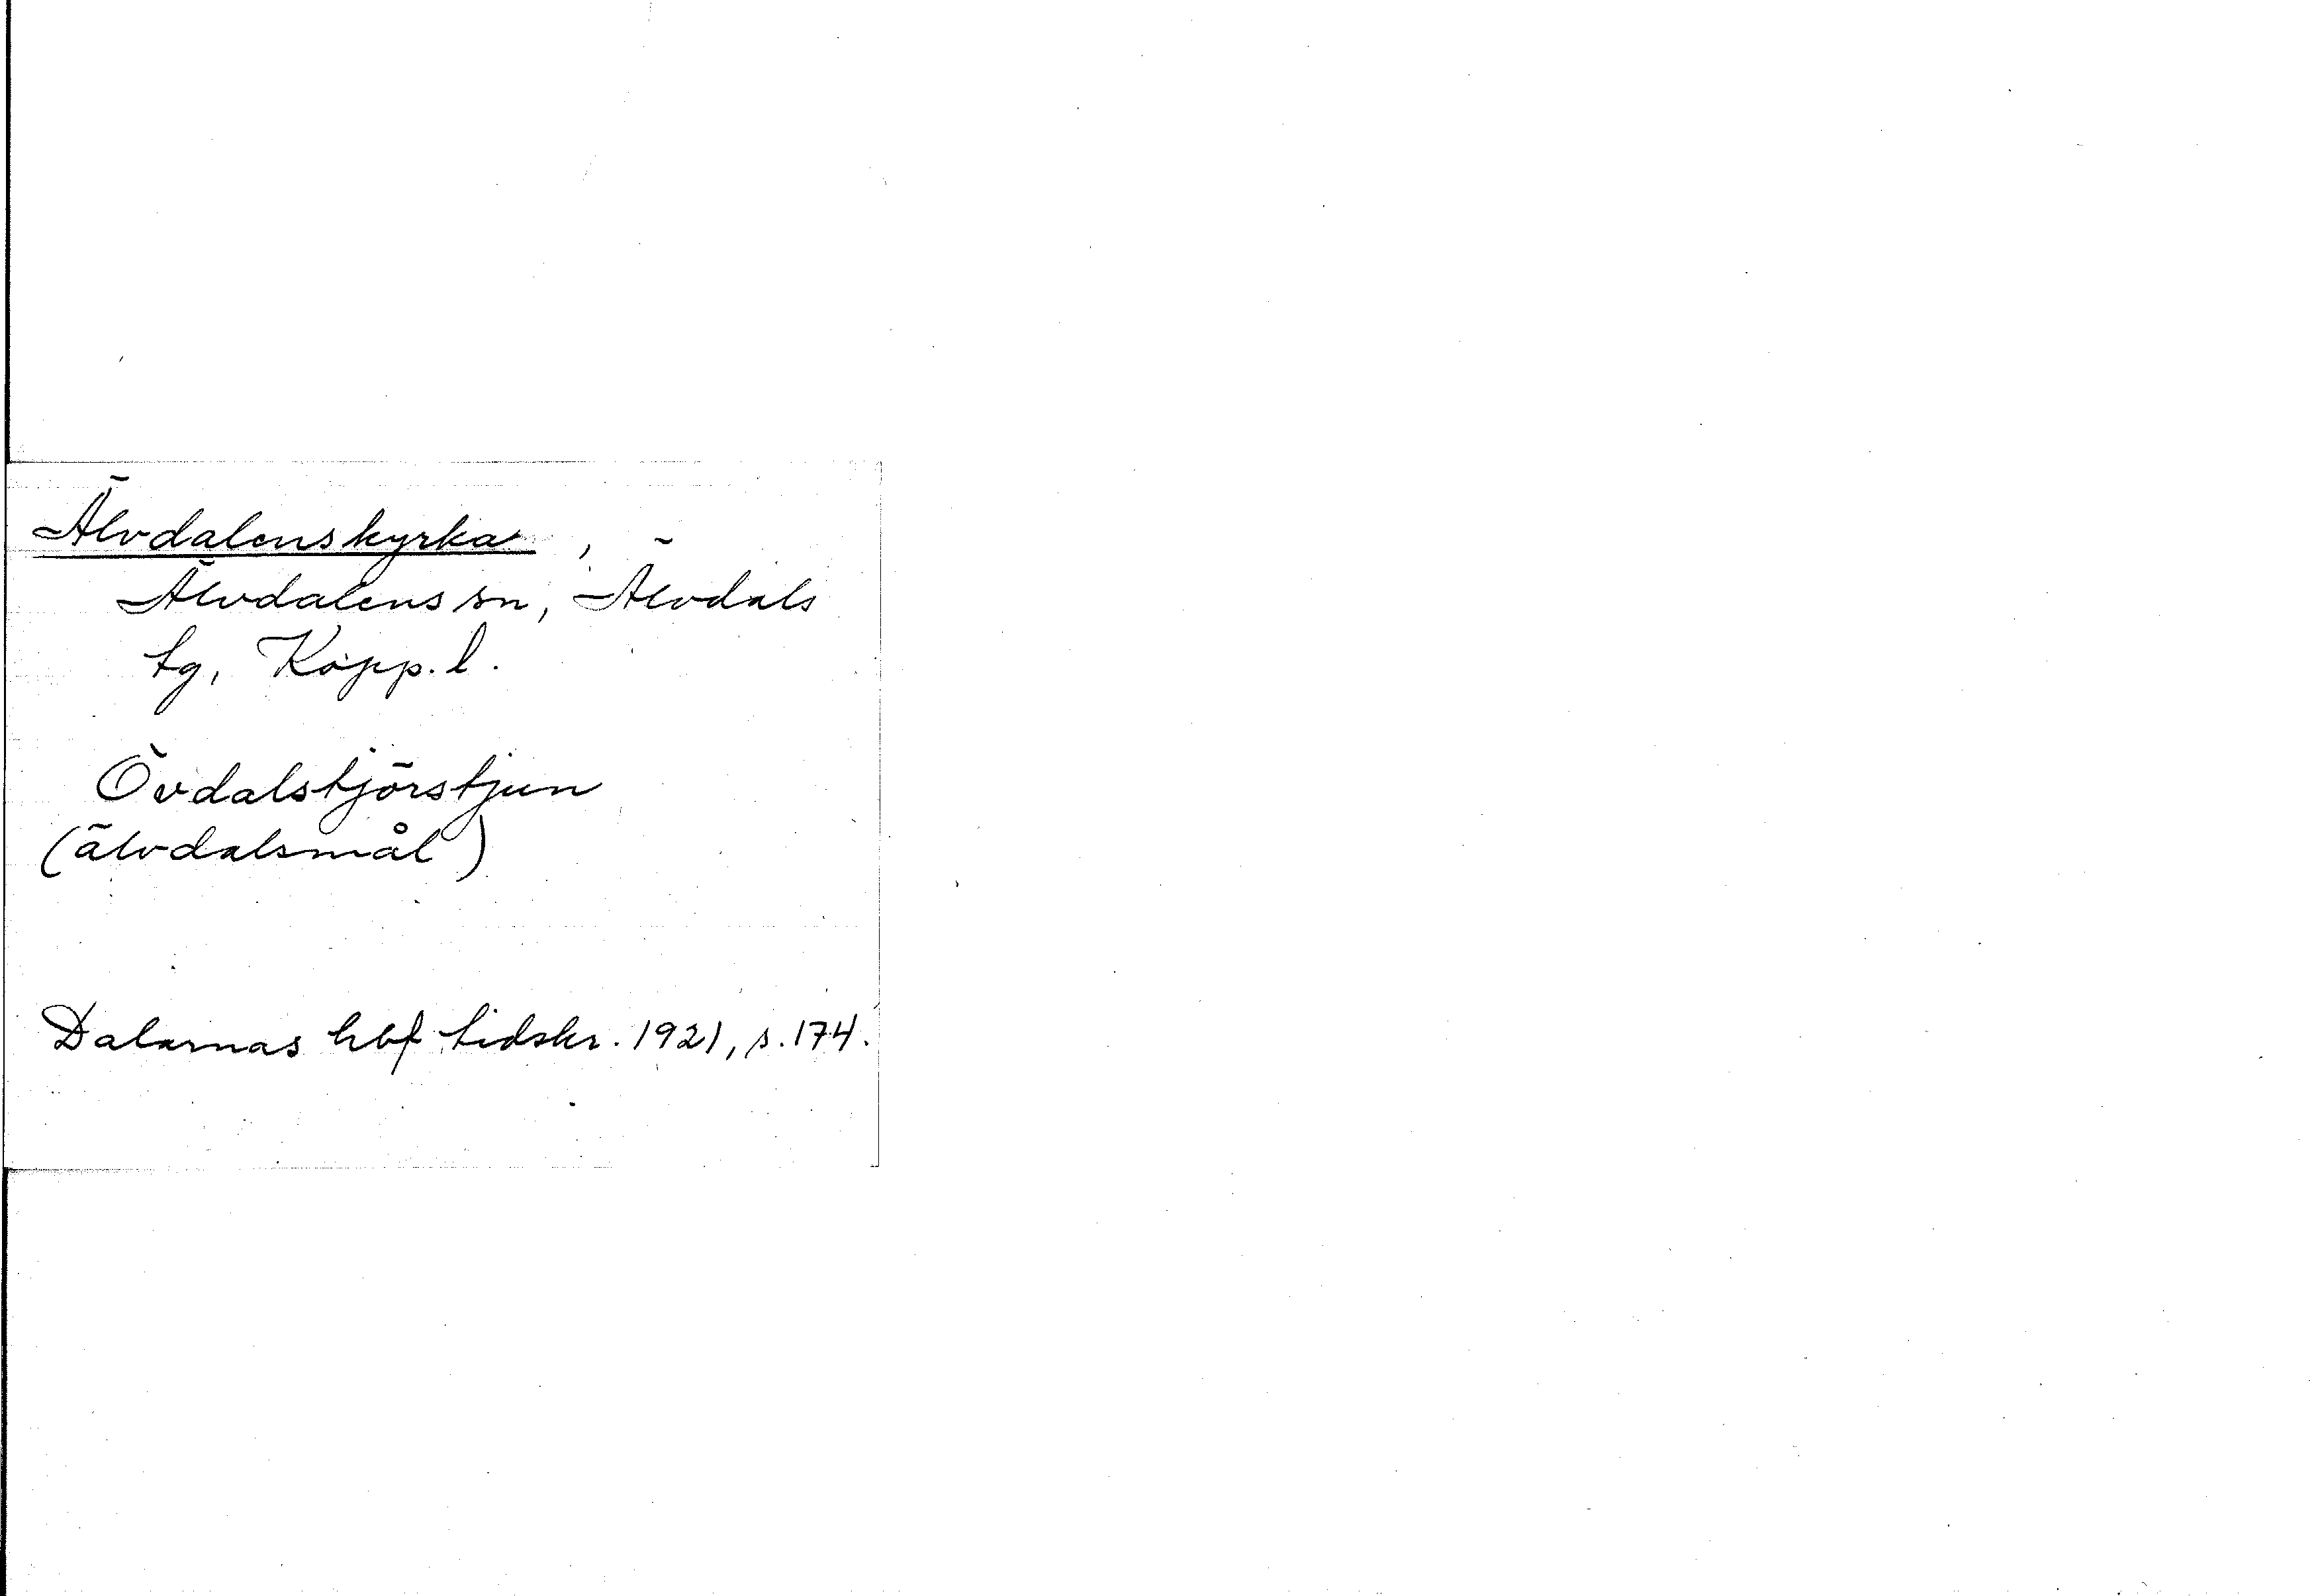 Älvdalens kyrka,
Älvdalens sn, Älvdals
tg, Kopp. l.
Övdalstjörstjun
(älvdalsmål)
Dalarnas hbf tidskr. 1921, s. 174.